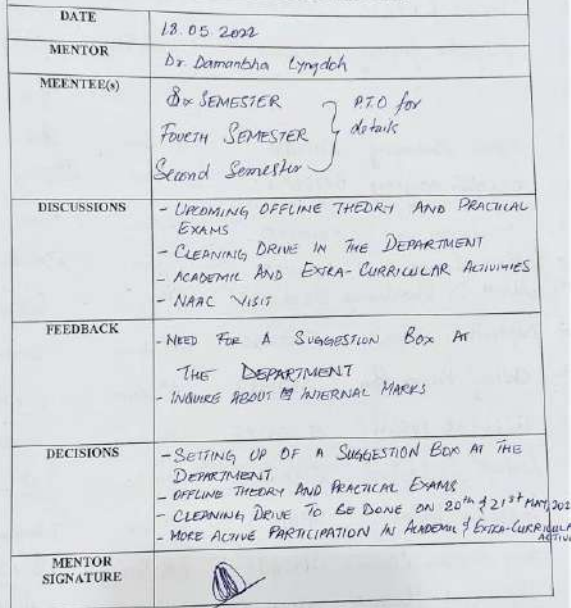 DATE
18.05.2022
MENTOR
Dr. Damanbha Lyngdoh
MEENTEE(s)
Six SEMESTER
FOURTH SEMESTER
Second Semester
P.T.O for
details
DISCUSSIONS
- UPCOMING OFFLINE THEORY AND PRACTICAL
EXAMS
- CLEANING DRIVE IN THE DEPARTMENT
- ACADEMIC AND EXTRA-CURRICULAR ACTIVITIES
- NAAC VISIT
FEEDBACK
- NEED FOR A SUGGESTION BOX AT
THE DEPARTMENT
- INQUIRE ABOUT INTERNAL MARKS
DECISIONS
- SETTING UP OF A SUGGESTION BOX AT THE
DEPARTMENT
- OFFLINE THEORY AND PRACTICAL EXAMS
- CLEANING DRIVE TO BE DONE ON 20th & 21st MAY, 202
- MORE ACTIVE PARTICIPATION IN ACADEMIC & EXTRA-CURRICULA
ACTIV
MENTOR
SIGNATURE